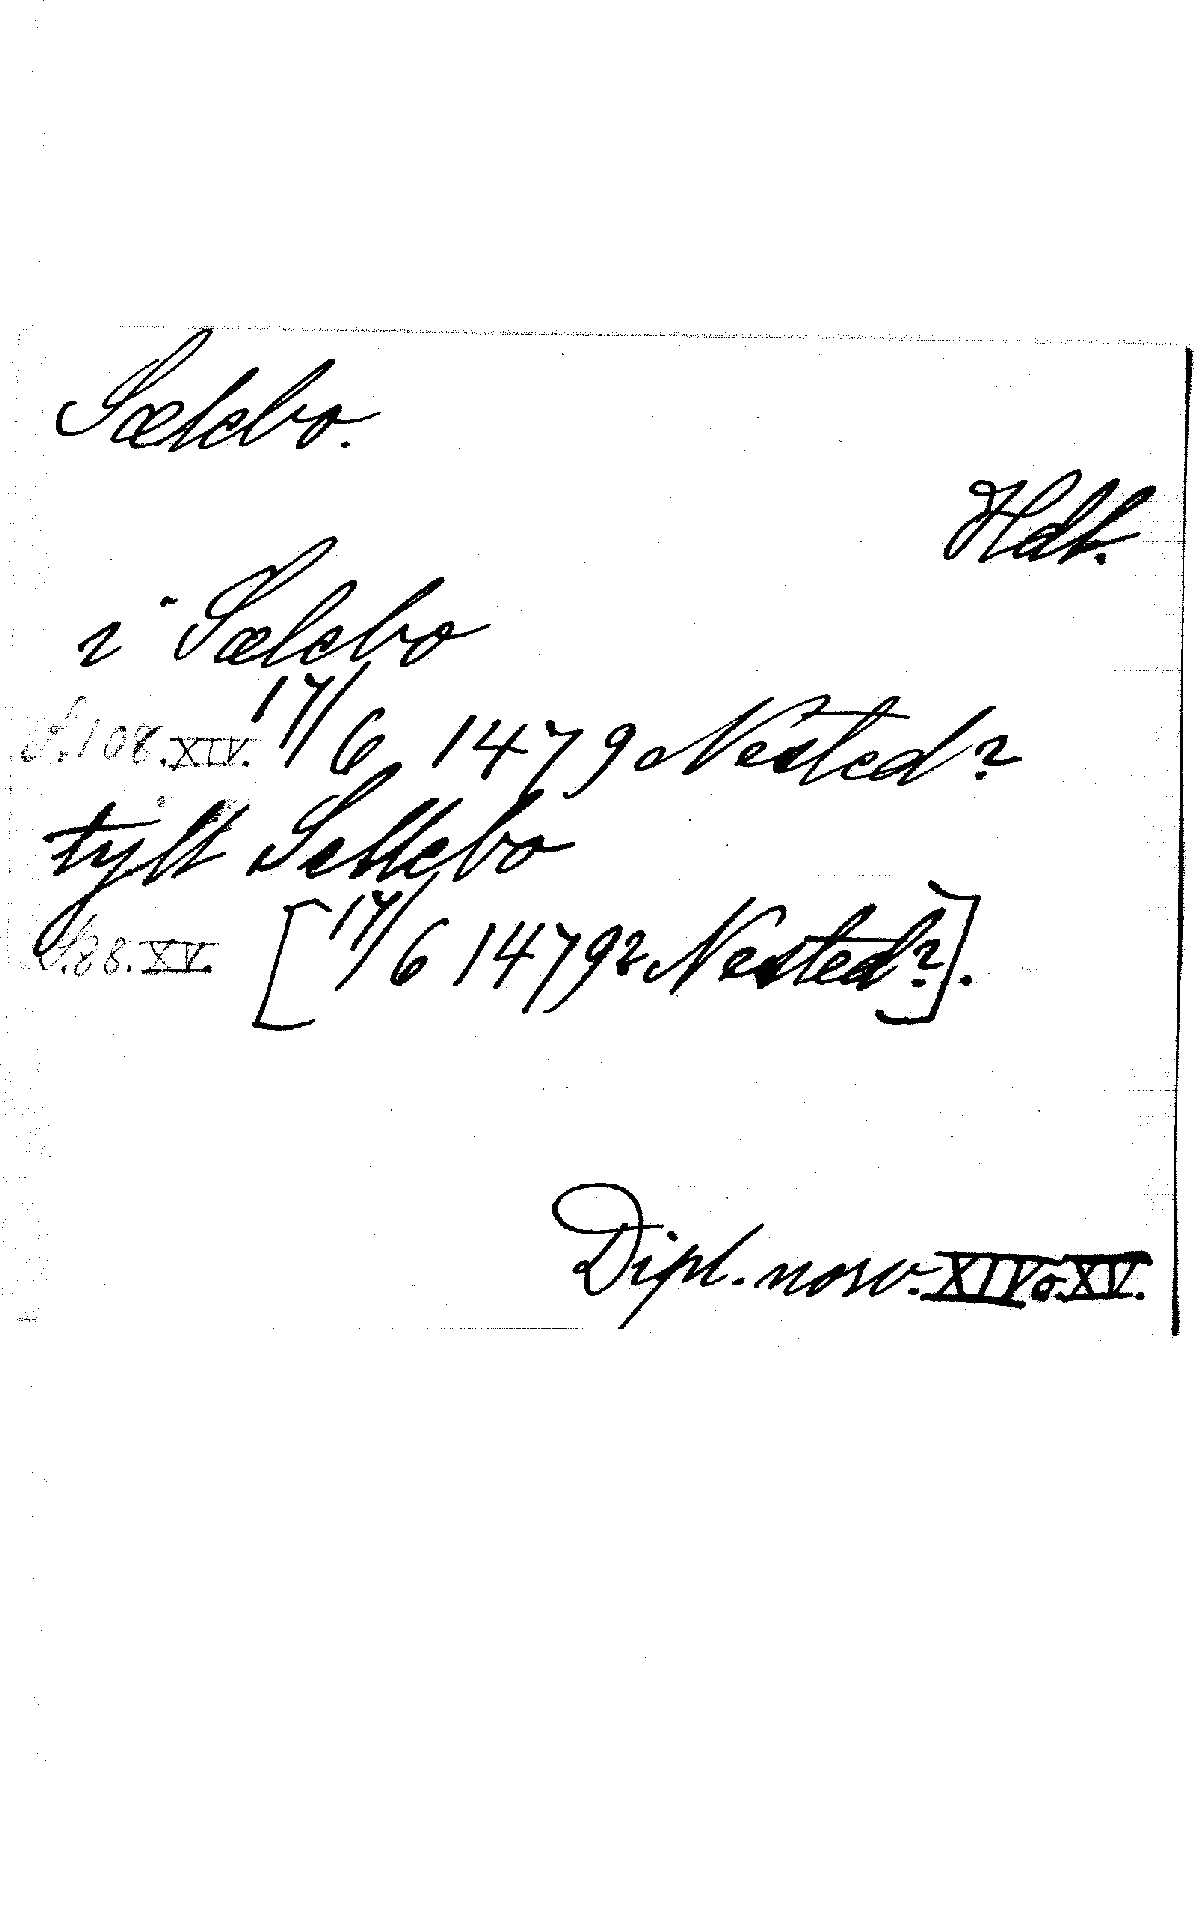 Sælebo.
Hdl.
i Sælebo
S. 108. XIV. 17/6 1479 Nested?
tylt Sellebo
S. 88. XV. [17/6 1479? Nested?].
Dipl. norv. XIV o. XV.